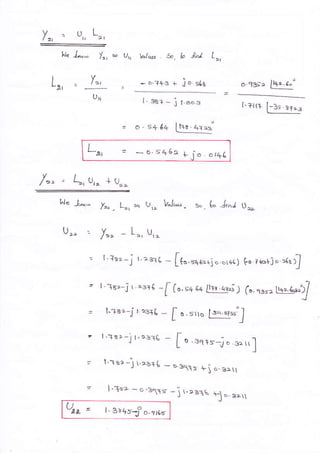 Y₂₁ = U₁₁ L₂₁
We know Y₂₁ & U₁₁ values. So, to find L₂₁
L₂₁ = Y₂₁ / U₁₁ = (- 0.743 + j 0.568) / (1.382 - j 1.003) = (0.9352 ∠142.60°) / (1.7117 ∠-35.8723)
= 0.5464 ∠178.4723°
L₂₁ = - 0.5462 + j 0.0146
Y₂₂ = L₂₁ U₁₂ + U₂₂
We know Y₂₂, L₂₁ & U₁₂ values, So, to find U₂₂
U₂₂ = Y₂₂ - L₂₁ U₁₂
= 1.782 - j 1.2376 - [(-0.5462 + j 0.0146) (-0.743 + j 0.568)]
= 1.782 - j 1.2376 - [(0.5464 ∠178.4723°) (0.9352 ∠142.602°)]
= 1.782 - j 1.2376 - [0.5110
= 1.782 - j 1.2376 - [0.3975 - j 0.3211]
= 1.782 - j 1.2376 - 0.3975 + j 0.3211
= 1.782 - 0.3975 - j 1.2376 + j 0.3211
U₂₂ = 1.3845 - j 0.9165